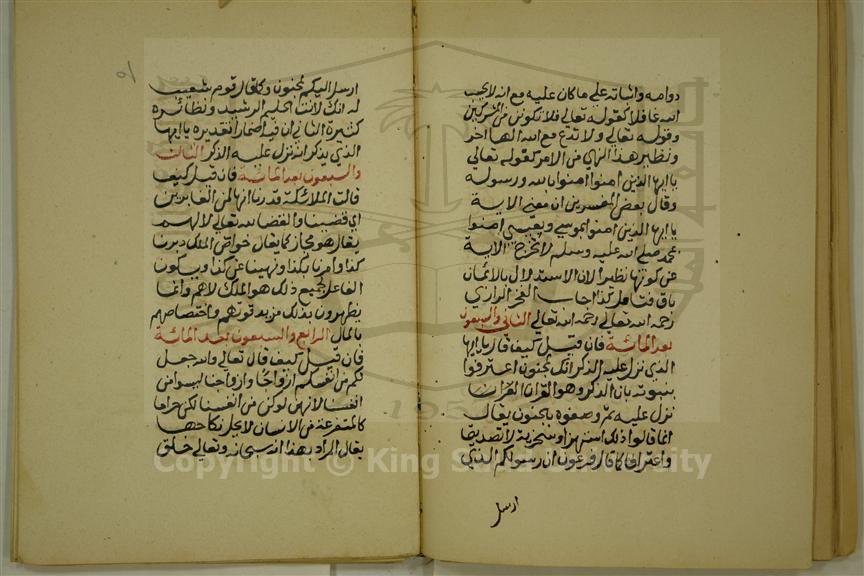 دوامه وإثباته على ما كان عليه مع انه لا يجب
الله غافلا كقوله تعالى فلا تكونن من المشركين
وقوله تعالى ولا تدع مع الله الها آخر
ونظير هذا النهي من الامر كقوله تعالى
يا ايها الذين امنوا امنوا بالله ورسوله
وقال بعض المفسرين ان معنى الاية
يا ايها الذين امنوا بموسى وبعيسى امنوا
بمحمد صلى الله عليه وسلم لا تخرج الاية
عن كونها نظيرا لان الاستدلال بالايمان
باق فتامل كذا اجاب الفخر الرازي
رحمه الله تعالى رحمه الله تعالى الثاني والسبعون
بعد المائة فان قيل كيف قالوا يا ايها
الذي نزل عليه الذكر انك لمجنون اعترفوا
بنبوته بان الذكر وهو القران القران
نزل عليه ثم وصفوه بالجنون يقال
انما قالوا ذلك استهزاء وسخرية لا تصديقا
واعترافا كما قال فرعون ان رسولكم الذي
ارسل
ارسل اليكم لمجنون وكما قال قوم شعيب
له انك لانت الحليم الرشيد ونظائره
كثيرة الثاني ان فيه اضمارا تقديره يا ايها
الذي يذكر انه نزل عليه الذكر الثالث
والسبعون بعد المائة فان قيل كيف
قالت الملائكة قدرنا انها لمن الغابرين
اي قضينا والقضا لله تعالى لا لهم
يقال هو مجاز كما يقال خواص الملك دبرنا
كذا وامرنا بكذا ونهينا عن كذا ويكون
الفاعل لجميع ذلك هو الملك لا هم وانما
يظهرون بذلك مزيد قربهم واختصاصهم
بالملك الرابع والسبعون بعد المائة
فان قيل كيف قال تعالى والله جعل
لكم من انفسكم ازواجا وازواجنا ليسوا من
انفسنا لانهن لو كن من انفسنا لكن حراما
كالمتفرعة من الانسان لا يحل نكاحها
يقال المراد بهذا انه سبحانه وتعالى خلق
Copyright © King Saud University